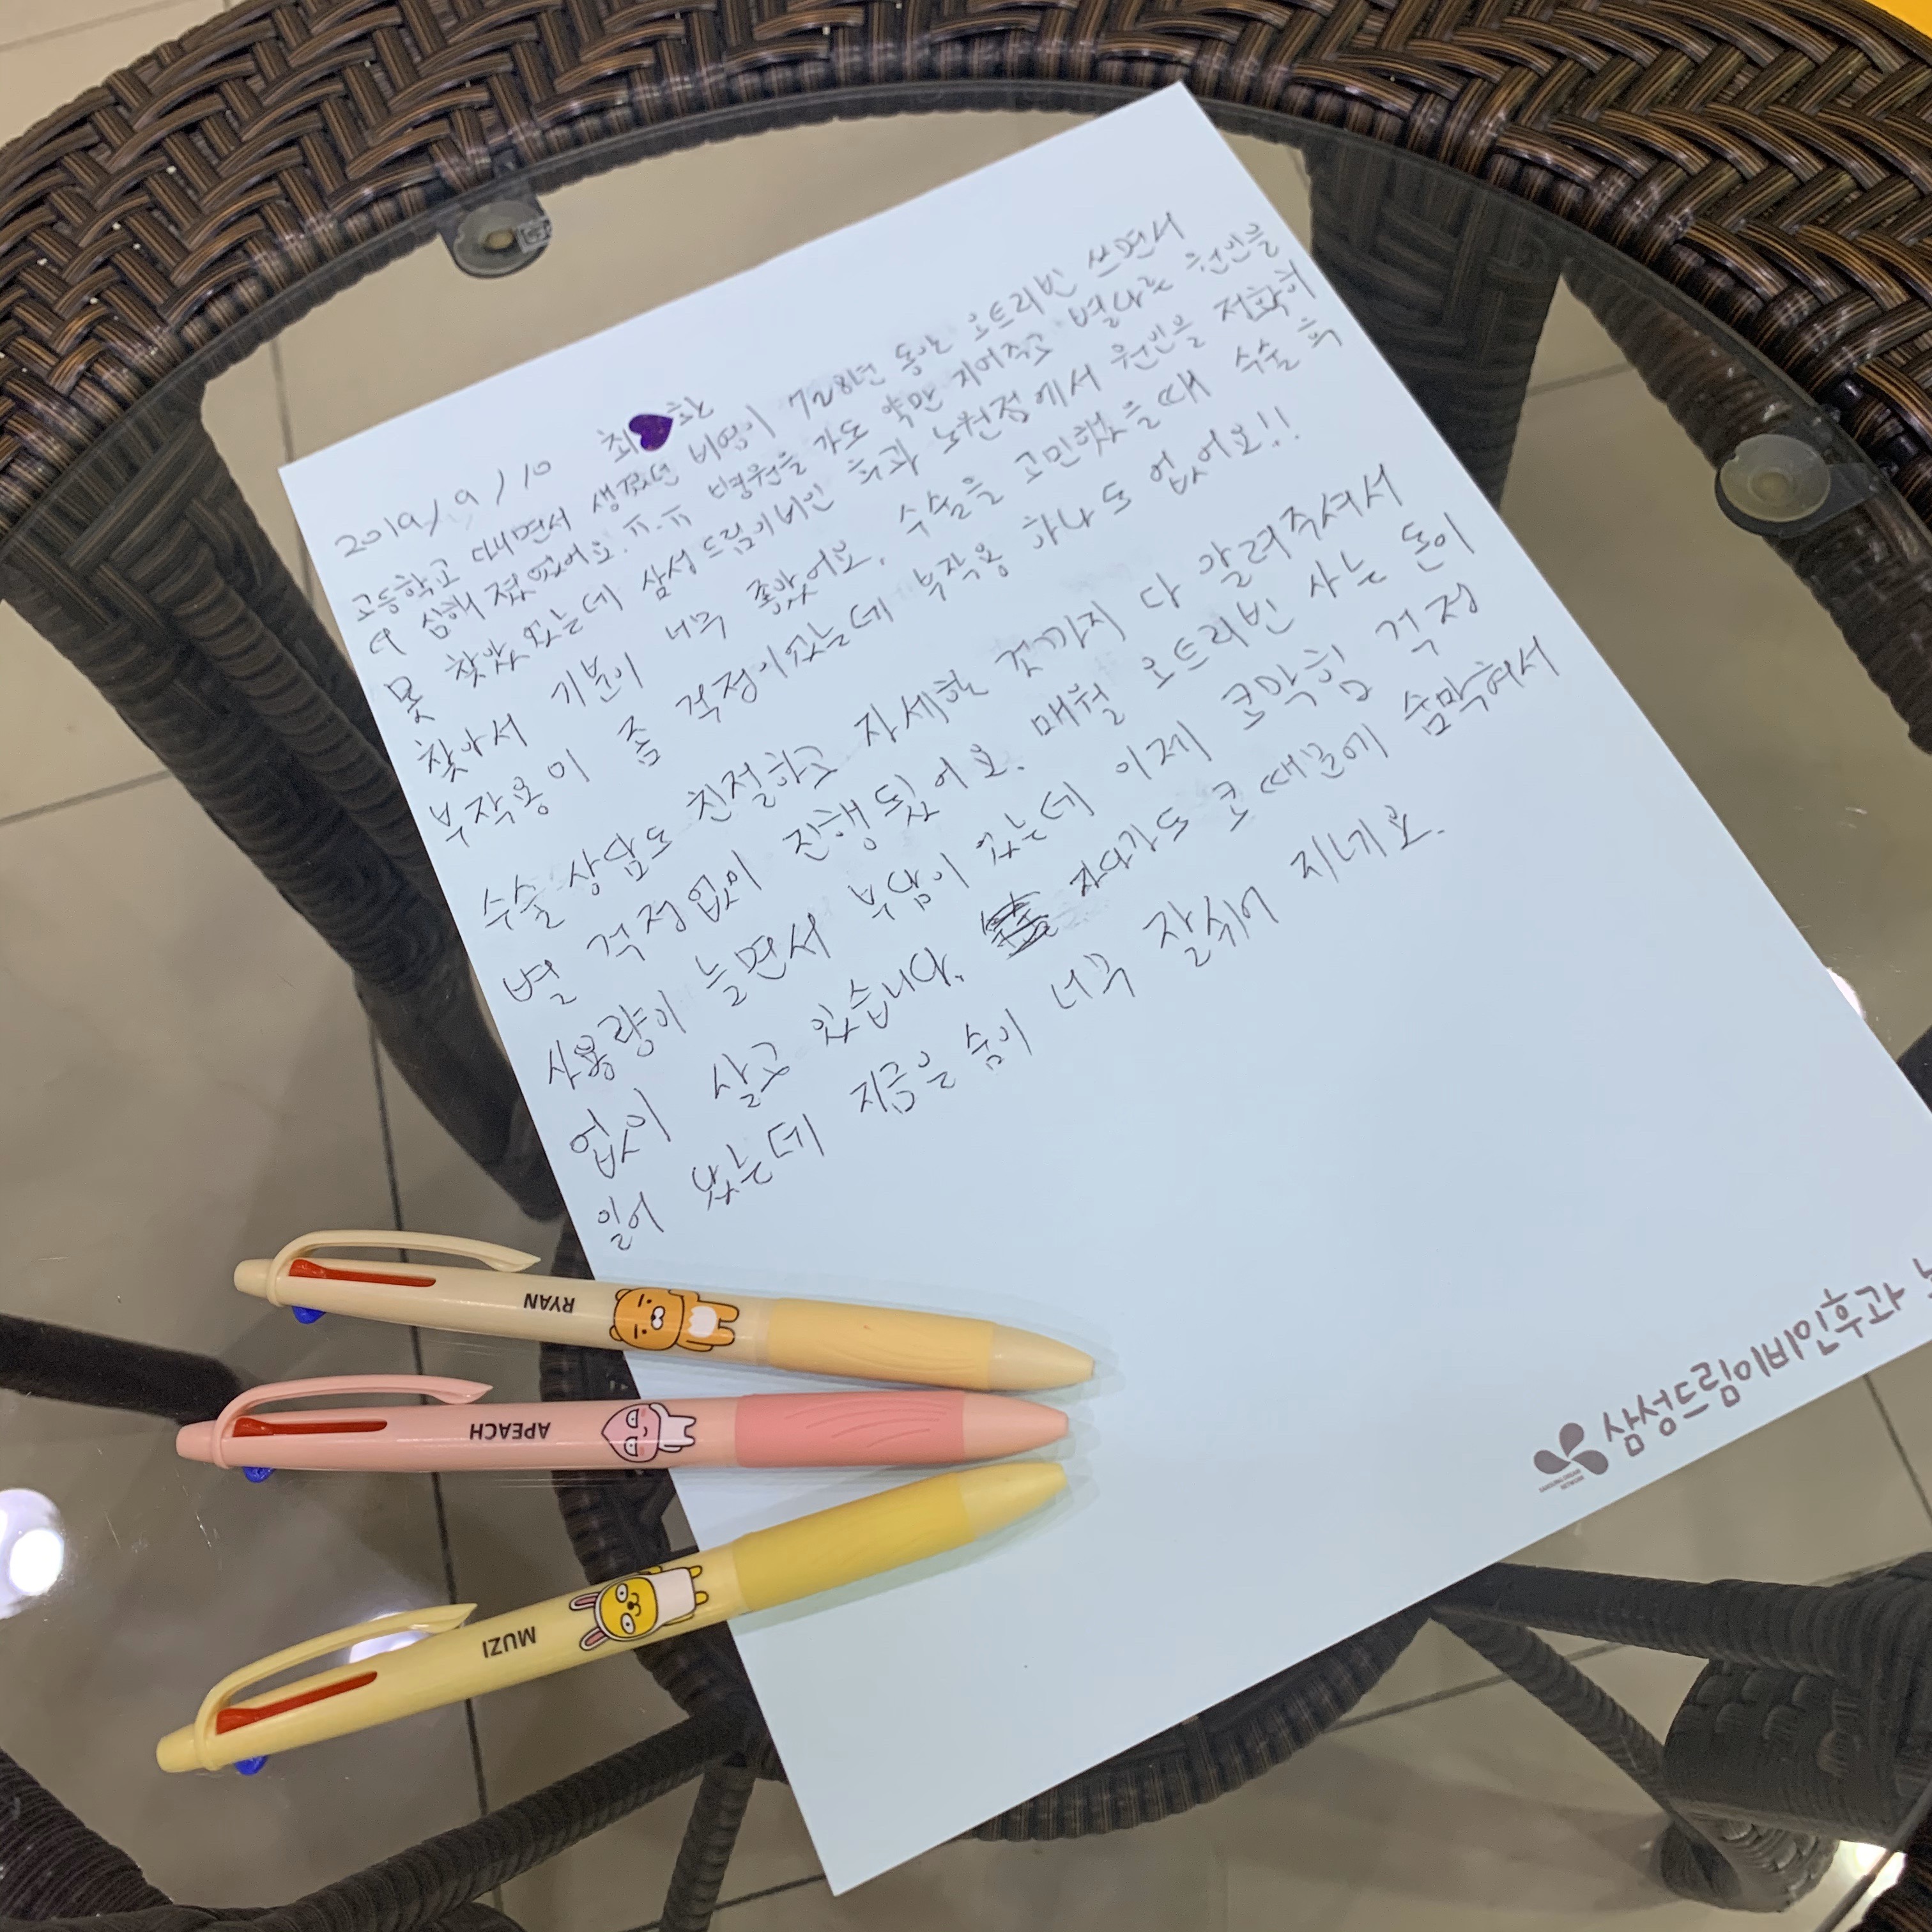 2019/9/10 최 환
고등학교 다니면서 생겼던 비염이 7~8년 동안 오트리빈 쓰면서
더 심해졌었어요.ㅠ.ㅠ 병원을 가도 약만 지어주고 별다른 원인을
못 찾았었는데 삼성드림이비인후과 노원점에서 원인을 정확히
찾아서 기분이 너무 좋았어요. 수술을 고민했을때 수술 후
부작용이 좀 걱정이었는데 부작용 하나도 없어요!!
수술 상담도 친절하고 자세한 것까지 다 알려주셔서
별 걱정없이 진행됬어요. 매월 오트리빈 사는 돈이
사용량이 늘면서 부담이 있는데 이제 코막힘 걱정
없이 살고 있습니다. 자다가도 코 때문에 숨막혀서
일어 났는데 지금은 숨이 너무 잘쉬어 지네요.
RYAN
APEACH
MUZI
삼성드림이비인후과